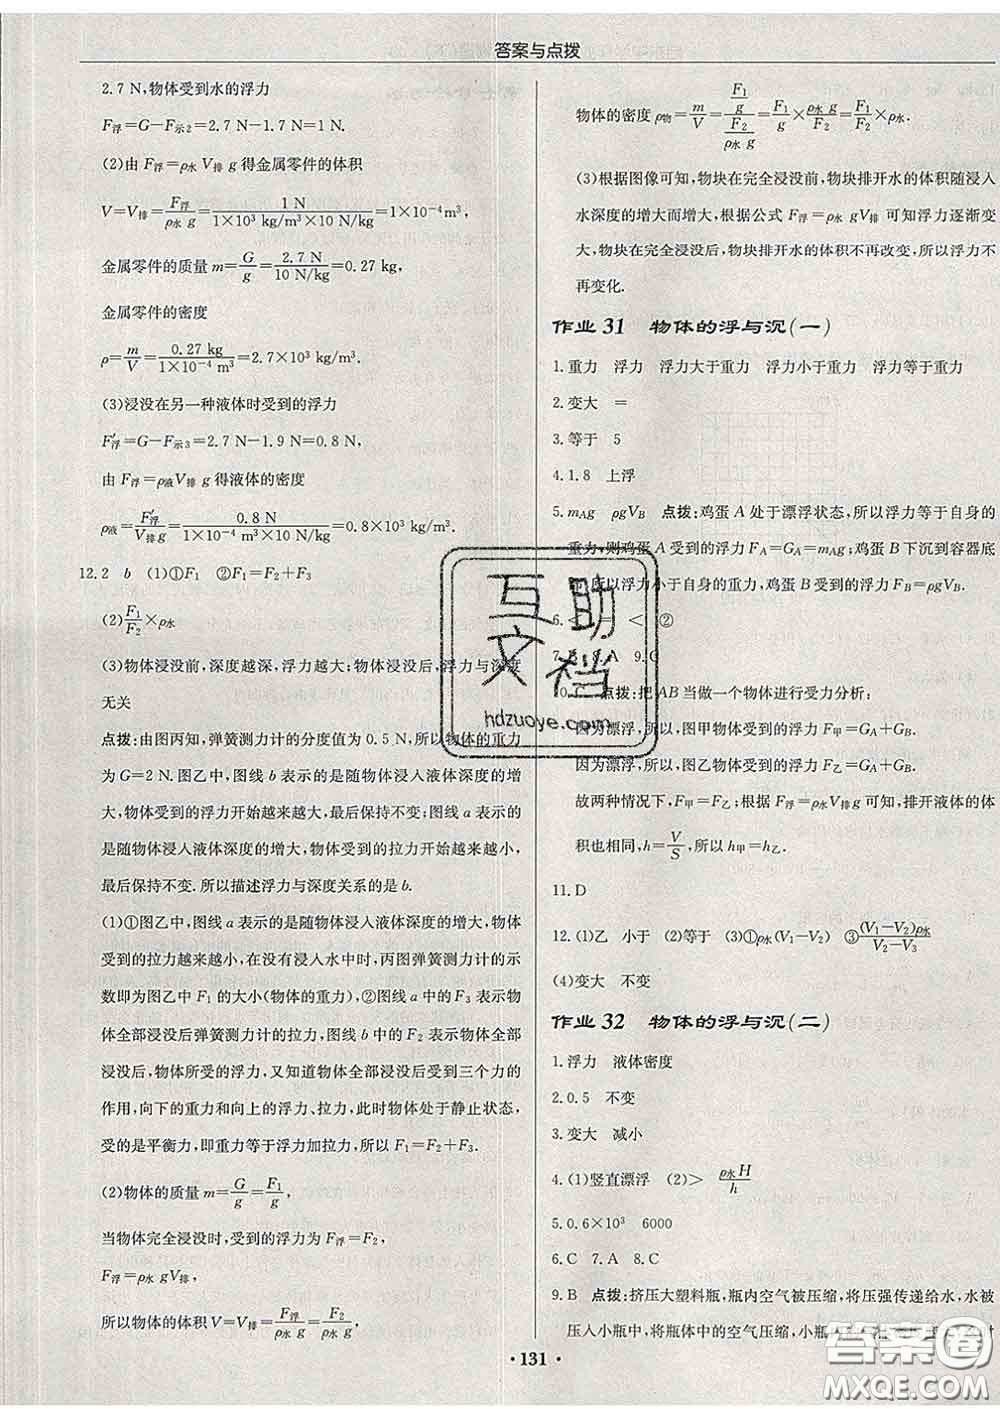 答案与点拨
2.7 N,物体受到水的浮力
F浮=G-F示2=2.7 N-1.7 N=1 N.
(2)由 F浮=ρ水 V排 g 得金属零件的体积
V=V排=F浮/(ρ水 g)=1 N/(1×10³ kg/m³×10 N/kg)=1×10⁻⁴m³,
金属零件的质量 m=G/g=2.7 N/(10 N/kg)=0.27 kg,
金属零件的密度
ρ=m/V=0.27 kg/(1×10⁻⁴ m³)=2.7×10³ kg/m³.
(3)浸没在另一种液体时受到的浮力
F′浮=G-F示3=2.7 N-1.9 N=0.8 N,
由 F浮=ρ液V排 g 得液体的密度
ρ液=F′浮/(V排 g)=0.8 N/(1×10⁻⁴ m³×10 N/kg)=0.8×10³ kg/m³.
12.2 b (1)①F1 ②F1=F2+F3
(2)F1/F2×ρ水
(3)物体浸没前,深度越深,浮力越大;物体浸没后,浮力与深度
无关
点拨:由图丙知,弹簧测力计的分度值为 0.5 N,所以物体的重力
为 G=2 N.图乙中,图线 b 表示的是随物体浸入液体深度的增
大,物体受到的浮力开始越来越大,最后保持不变;图线 a 表示的
是随物体浸入液体深度的增大,物体受到的拉力开始越来越小,
最后保持不变.所以描述浮力与深度关系的是 b.
(1)①图乙中,图线 a 表示的是随物体浸入液体深度的增大,物体
受到的拉力越来越小,在没有浸入水中时,丙图弹簧测力计的示
数即为图乙中 F1 的大小(物体的重力),②图线 a 中的 F3 表示物
体全部浸没后弹簧测力计的拉力,图线 b 中的 F2 表示物体全部
浸没后,物体所受的浮力,又知道物体全部浸没后受到三个力的
作用,向下的重力和向上的浮力、拉力,此时物体处于静止状态,
受的是平衡力,即重力等于浮力加拉力,所以 F1=F2+F3.
(2)物体的质量 m=G/g=F1/g,
当物体完全浸没时,受到的浮力为 F浮=F2,
F浮=ρ水 gV排,
所以物体的体积 V=V排=F浮/(ρ水 g)=F2/(ρ水 g),
物体的密度 ρ物=m/V=(F1/g)/(F2/(ρ水 g))=F1/g×ρ水 g/F2=F1/F2×ρ水.
(3)根据图像可知,物块在完全浸没前,物块排开水的体积随浸入
水深度的增大而增大,根据公式 F浮=ρ水 gV排 可知浮力逐渐变
大,物块在完全浸没后,物块排开水的体积不再改变,所以浮力不
再变化.
作业 31 物体的浮与沉(一)
1.重力 浮力 浮力大于重力 浮力小于重力 浮力等于重力
2.变大 =
3.等于 5
4.1.8 上浮
5.mAg ρgVB 点拨:鸡蛋 A 处于漂浮状态,所以浮力等于自身的
重力,则鸡蛋 A 受到的浮力 FA=GA=mAg;鸡蛋 B 下沉到容器底
所以浮力小于自身的重力,鸡蛋 B 受到的浮力 FB=ρgVB.
6.< = < ②
7.B 8.A 9.C
10.C 点拨:把 AB 当做一个物体进行受力分析;
因为漂浮,所以,图甲物体受到的浮力 F甲=GA+GB.
因为漂浮,所以,图乙物体受到的浮力 F乙=GA+GB.
故两种情况下,F甲=F乙;根据 F浮=ρ水V排g 可知,排开液体的体
积也相同,h=V/S,所以 h甲=h乙.
11.D
12.(1)乙 小于 (2)等于 (3)①ρ水(V1-V2) ③(V1-V2)ρ水/(V2-V3)
(4)变大 不变
作业 32 物体的浮与沉(二)
1.浮力 液体密度
2.0.5 不变
3.变大 减小
4.(1)竖直漂浮 (2)> ρ水H/h
5.0.6×10³ 6000
6.C 7.A 8.C
9.B 点拨:挤压大塑料瓶,瓶内空气被压缩,将压强传递给水,水被
压入小瓶中,将瓶体中的空气压缩,小瓶
• 131 •
互助
文档
hdzuoye.com
答案圈
MXQE.COM